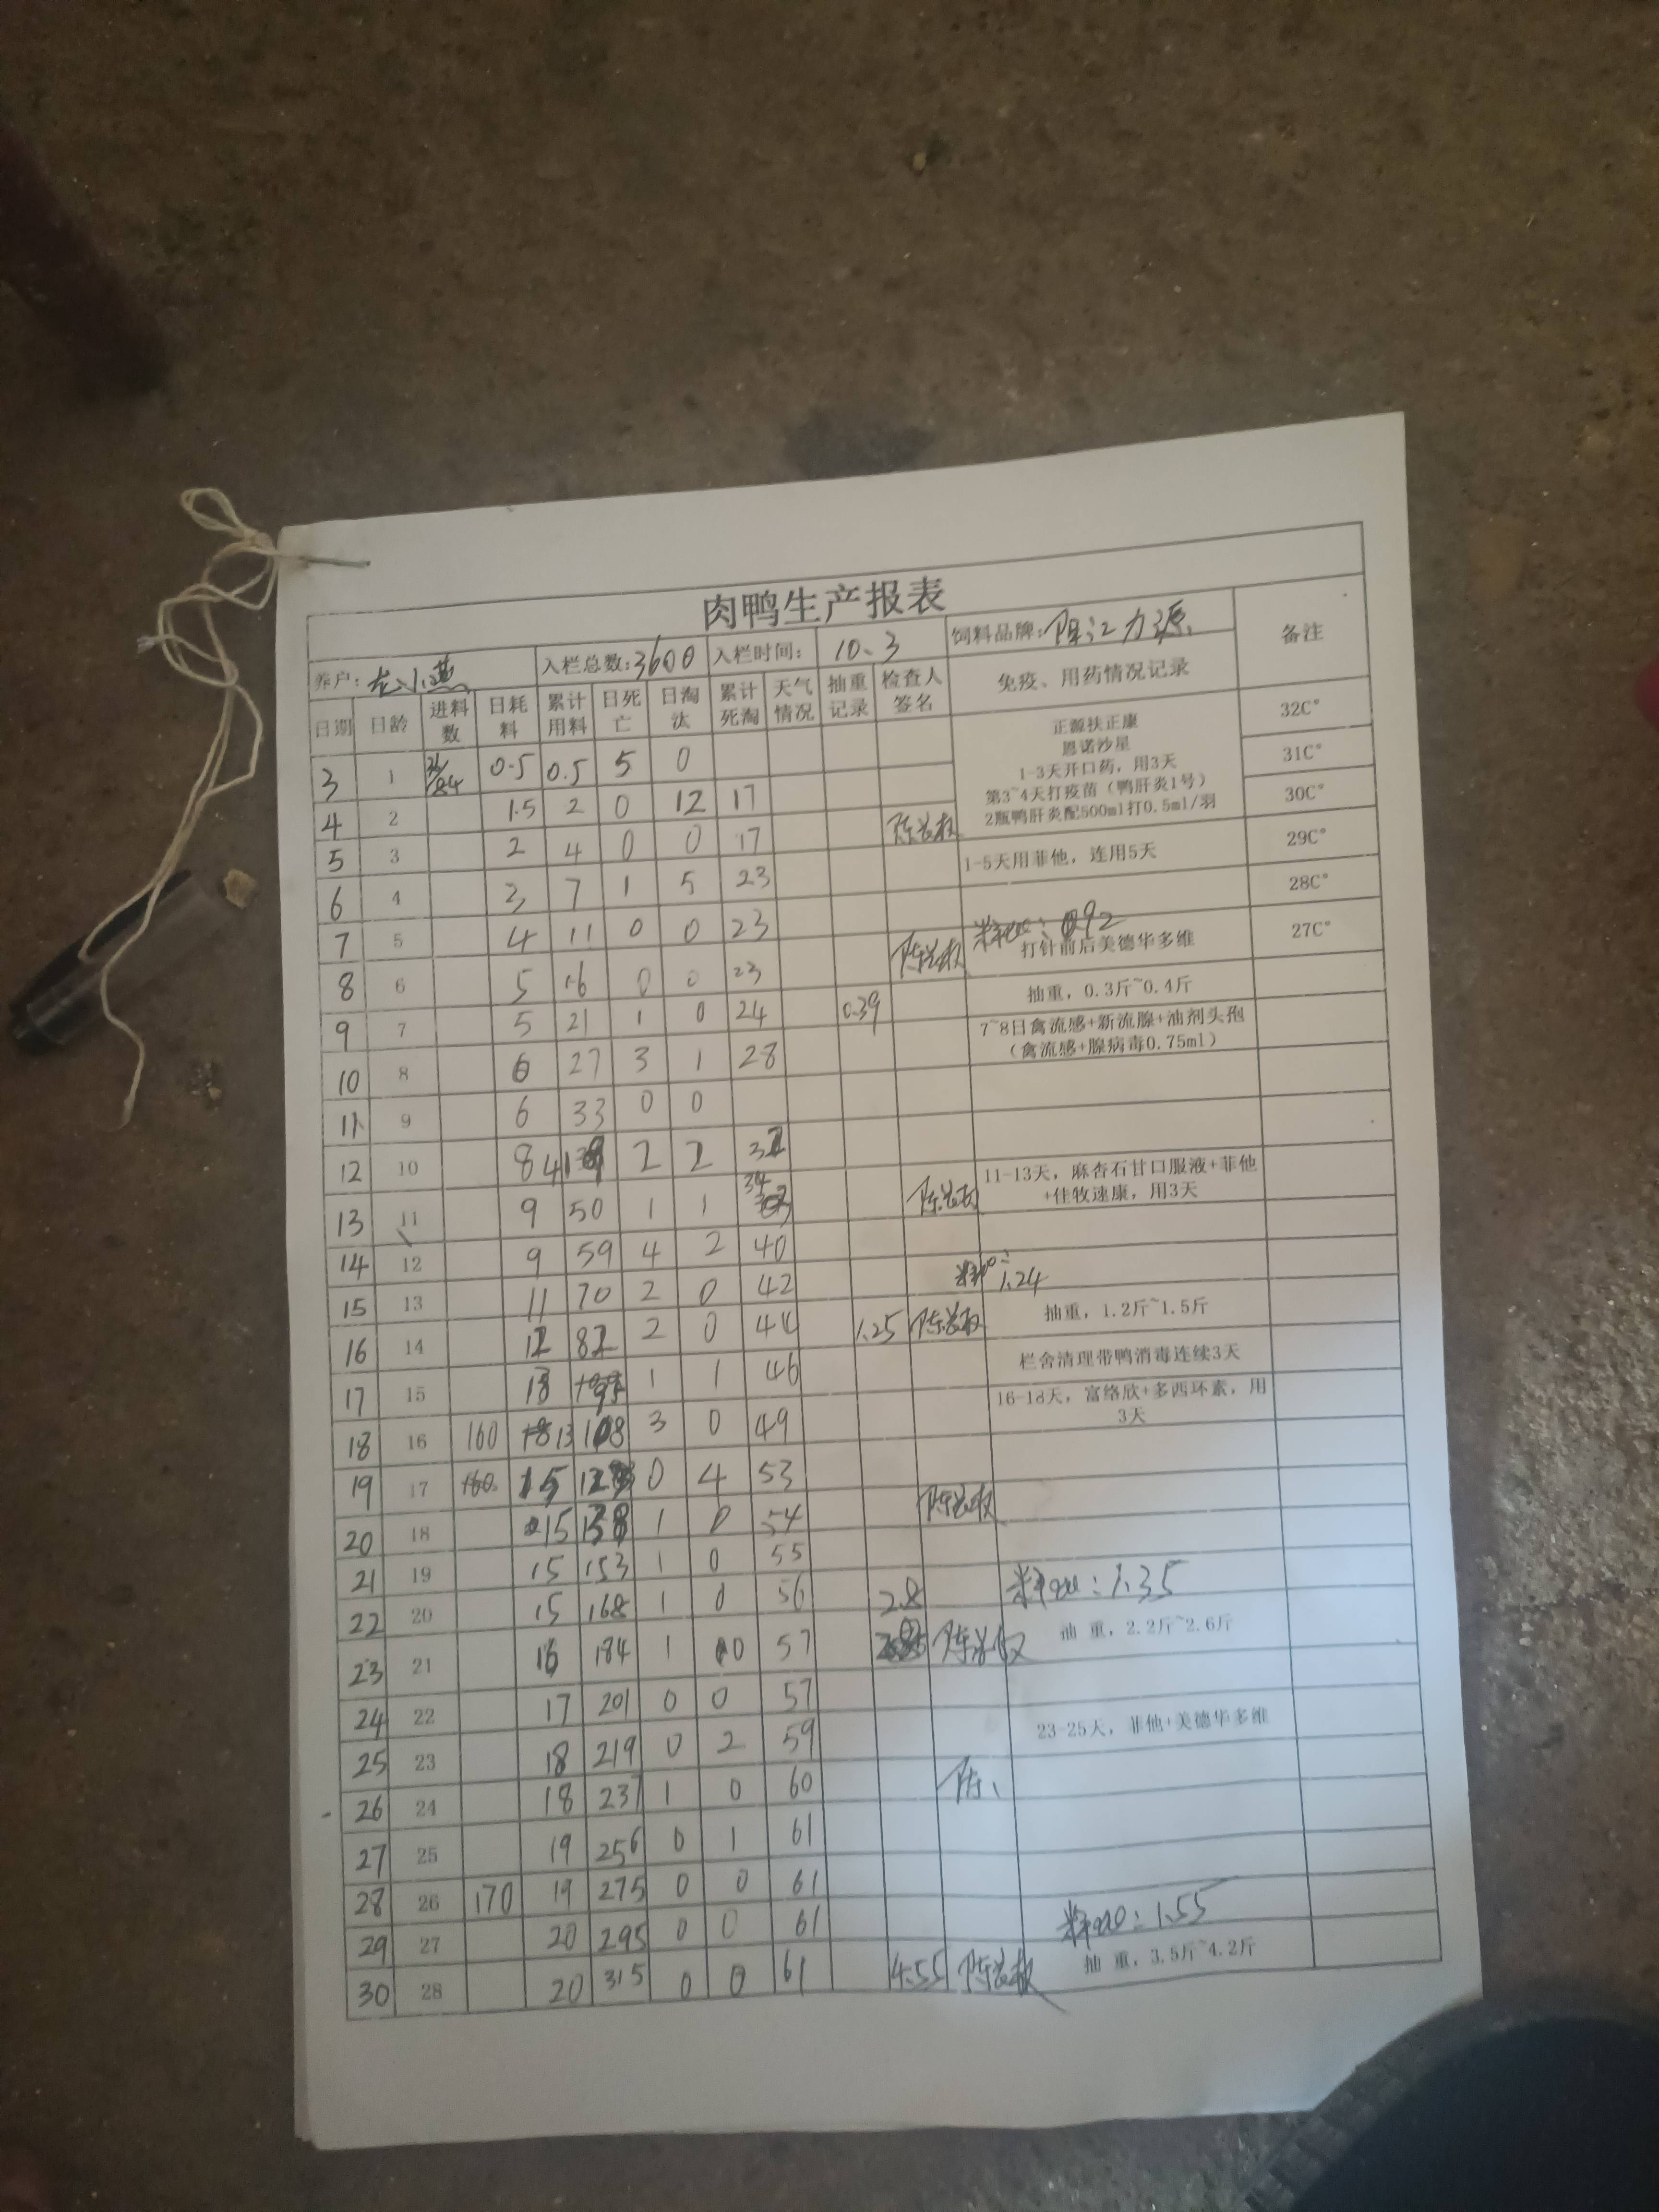 肉鸭生产报表
养户: 入栏总数:3600 入栏时间: 10.3 饲料品牌:阳江力源 备注
日期 日龄 进料数 日耗料 累计用料 日死亡 日淘汰 累计死淘 天气情况 抽重记录 检查人签名 免疫、用药情况记录
3 1 0.5 0.5 5 0 正源扶正康 32C°
恩诺沙星
4 2 1.5 2 0 12 17 1-3天开口药，用3天 31C°
第3~4天打疫苗（鸭肝炎1号）
5 3 2 4 0 0 17 2瓶鸭肝炎配500ml打0.5ml/羽 30C°
6 4 3 7 1 5 23 1-5天用菲他，连用5天 29C°
7 5 4 11 0 0 23 28C°
8 6 5 16 0 0 23 打针前后美德华多维 27C°
9 7 5 21 1 0 24 0.39 抽重，0.3斤~0.4斤
10 8 6 27 3 1 28 7~8日禽流感+新流腺+油剂头孢
（禽流感+腺病毒0.75ml）
11 9 6 33 0 0
12 10 8 41 2 2 32
13 11 9 50 1 1 34 11-13天，麻杏石甘口服液+菲他
+佳牧速康，用3天
14 12 9 59 4 2 40
15 13 11 70 2 0 42 1.24
16 14 12 82 2 0 44 1.25 抽重，1.2斤~1.5斤
17 15 13 1 1 46 栏舍清理带鸭消毒连续3天
18 16 160 13 108 3 0 49 16-18天，富络欣+多西环素，用
3天
19 17 15 123 0 4 53
20 18 15 138 1 0 54
21 19 15 153 1 0 55
22 20 15 168 1 0 56 2.8 1.35
23 21 16 184 1 0 57 抽 重，2.2斤~2.6斤
24 22 17 201 0 0 57
25 23 18 219 0 2 59 23-25天，菲他+美德华多维
26 24 18 237 1 0 60 陈
27 25 19 256 0 1 61
28 26 170 19 275 0 0 61
29 27 20 295 0 0 61 1.55
30 28 20 315 0 0 61 4.55 抽 重，3.5斤~4.2斤